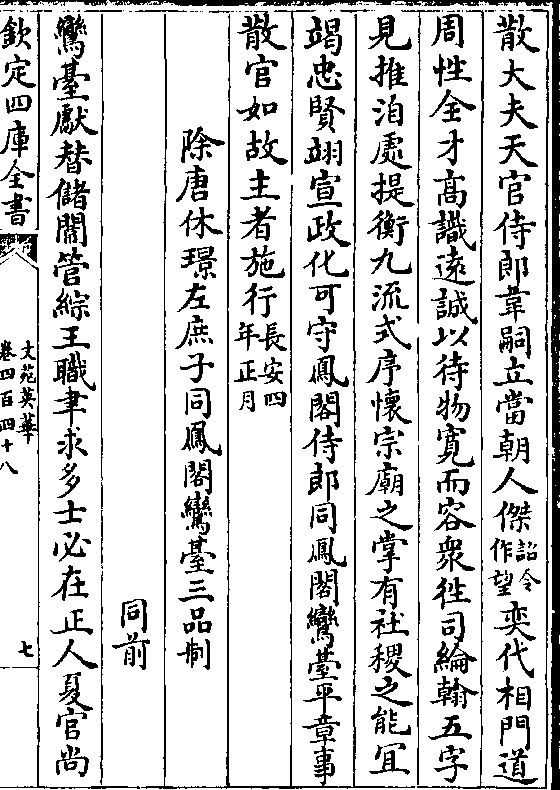 散大夫天官侍郎韋嗣立當朝人傑詔令作望奕代相門道
周性全才高識遠誠以待物寛而容衆徃司綸翰五字
見推洎處提衡九流式序懷宗廟之掌有社稷之能冝
竭忠賢翊宣政化可守鳳閣侍郎同鳳閣鸞臺平章事
散官如故主者施行長安四年正月
除唐休璟左庶子同鳳閣鸞臺三品制
同前
鸞臺獻替儲闈管綜王職聿求多士必在正人夏官尚
欽定四庫全書
文苑英華
卷四百四十八
七